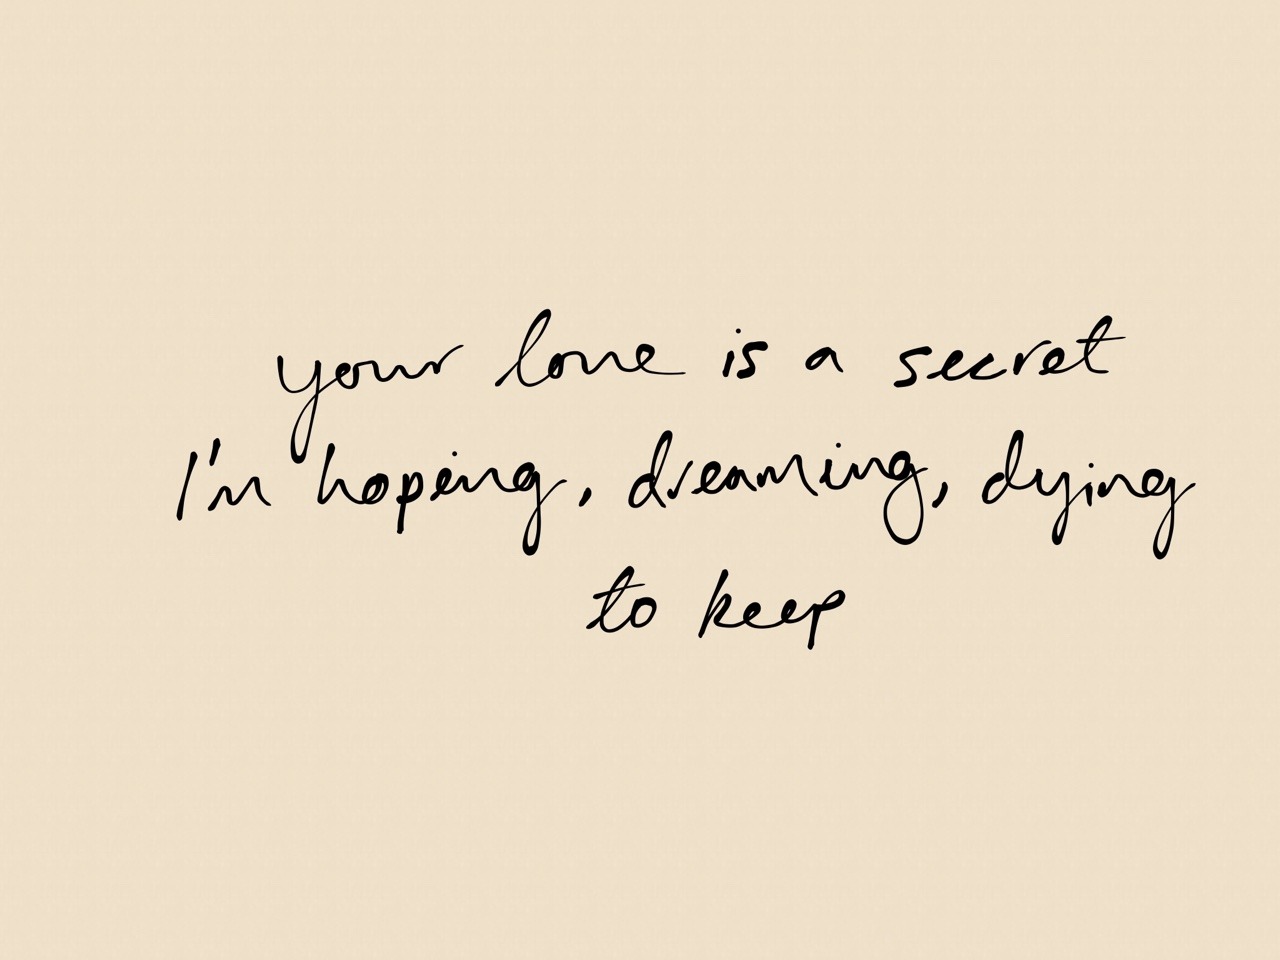 your love is a secret
I'm hoping, dreaming, dying
to keep